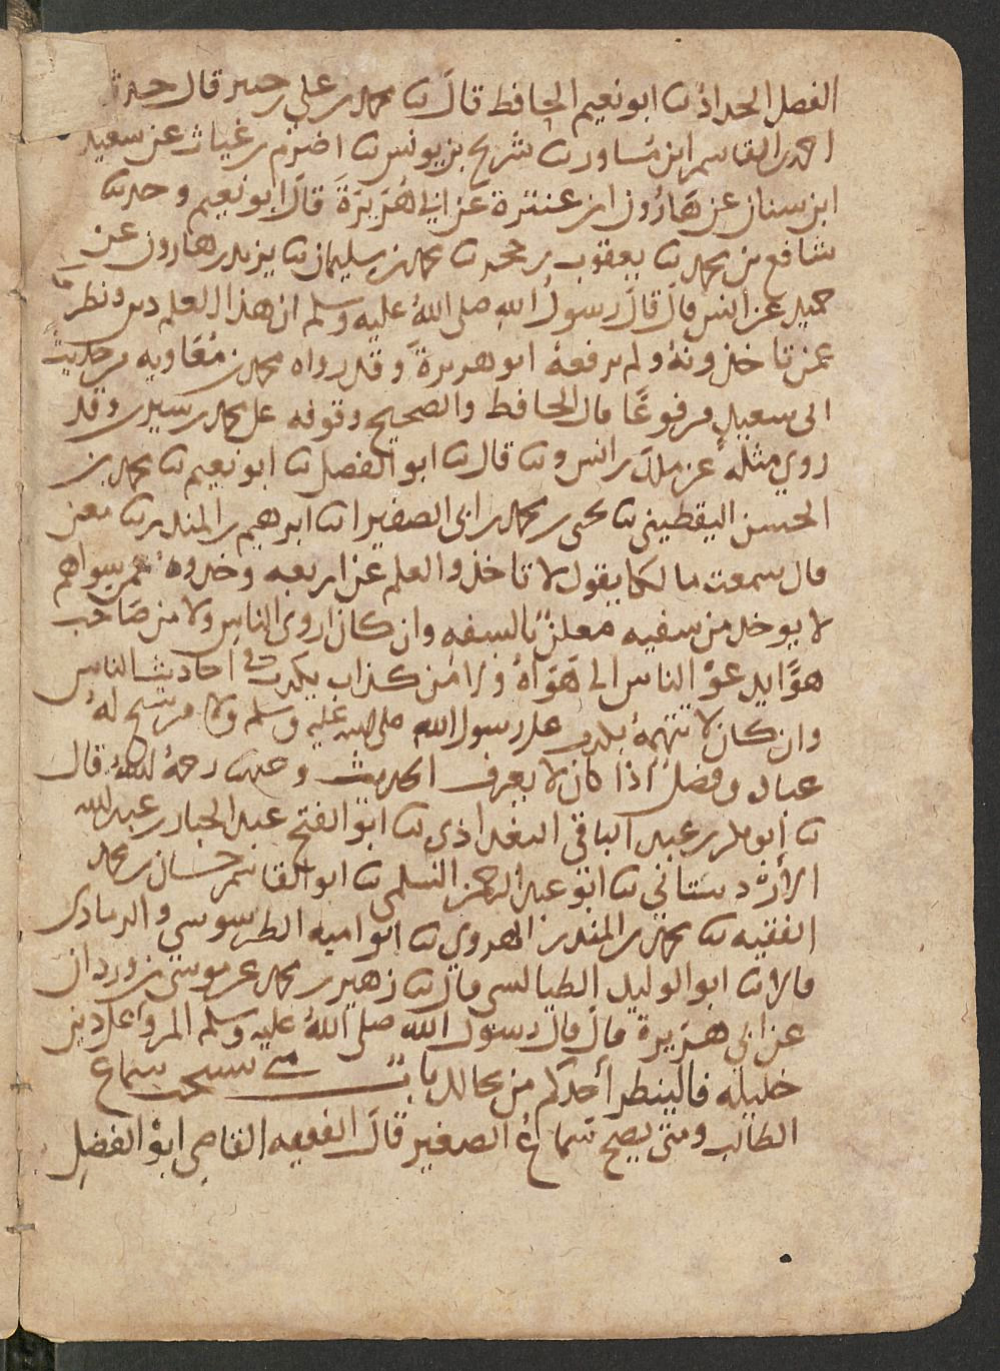 الفضل الحداد نا ابو نعيم الحافظ قال نا محمد بن علي بن حبيش قال حدثنا
احمد بن القاسم ابن مساور نا شريح بن يونس نا اصرم بن غياث عن سعيد
ابن سنان عن هارون ابن عنترة عن ابي هُرَيرَةَ قال ابو نعيم وحدثنا
شافع بن محمد نا يعقوب بن حجر نا محمد بن سليمان نا يزيد بن هارون عن
حميد عن انس قال قال رسول الله صلى الله عليه وسلم ان هذا العلم دين فانظروا
عمن تاخذونه ولم يرفعه ابو هريرة وقد رواه محمد بن مُعَاويه من حديث
ابي سعيد مرفوعًا قال الحافظ والصحيح وقوفه على محمد بن سيرين وقد
روي مثله عن ملك بن انس ونا قال نا ابو الفضل نا ابو نعيم نا محمد بن
الحسن اليقطيني نا يحيى بن محمد بن ابي الصفيرا نا ابرهيم بن المنذر نا معن
قال سمعت مالكا يقول لا تاخذوا العلم عن اربعه وخذوه ممن سواهم
لا يوخذ من سفيه معلن بالسفه وان كان اروى الناس ولا من صَاحب
هوًا يدعوْ الناس الى هَوَاهُ ولا من كذاب يكذب في احاديث الناس
وان كان لا تتهمهُ بكذب على رسول الله صلى الله عليه وسلم ولا من شيخ لهُ
عباده وفضل اذا كان لا يعرف الحديث وحدثنا رحمهُ اللهُ قال
نا ابو بكر بن عبد الباقي البغداذي نا ابو الفتح عبد الجبار بن عبد الله
الأرْدستاني نا ابو عبد الرحمن السلمي نا ابو القاسم حسان بن محمد
الفقيه نا محمد بن المنذر الهروي نا ابو اميه الطرسوسي والرمادى
قالا نا ابو الوليد الطيالسي قال نا زهير بن محمد عن موسى بن وردان
عن ابي هريرة قال قال رسول الله صلى اللهُ عليه وسلم المرؤ على دين
خليله فالينظر أحدكم من يخالل باب متى يستحب سماع
الطالب ومتى يصح سماع الصغير قال الفقيه القاضي ابوْ الفضل